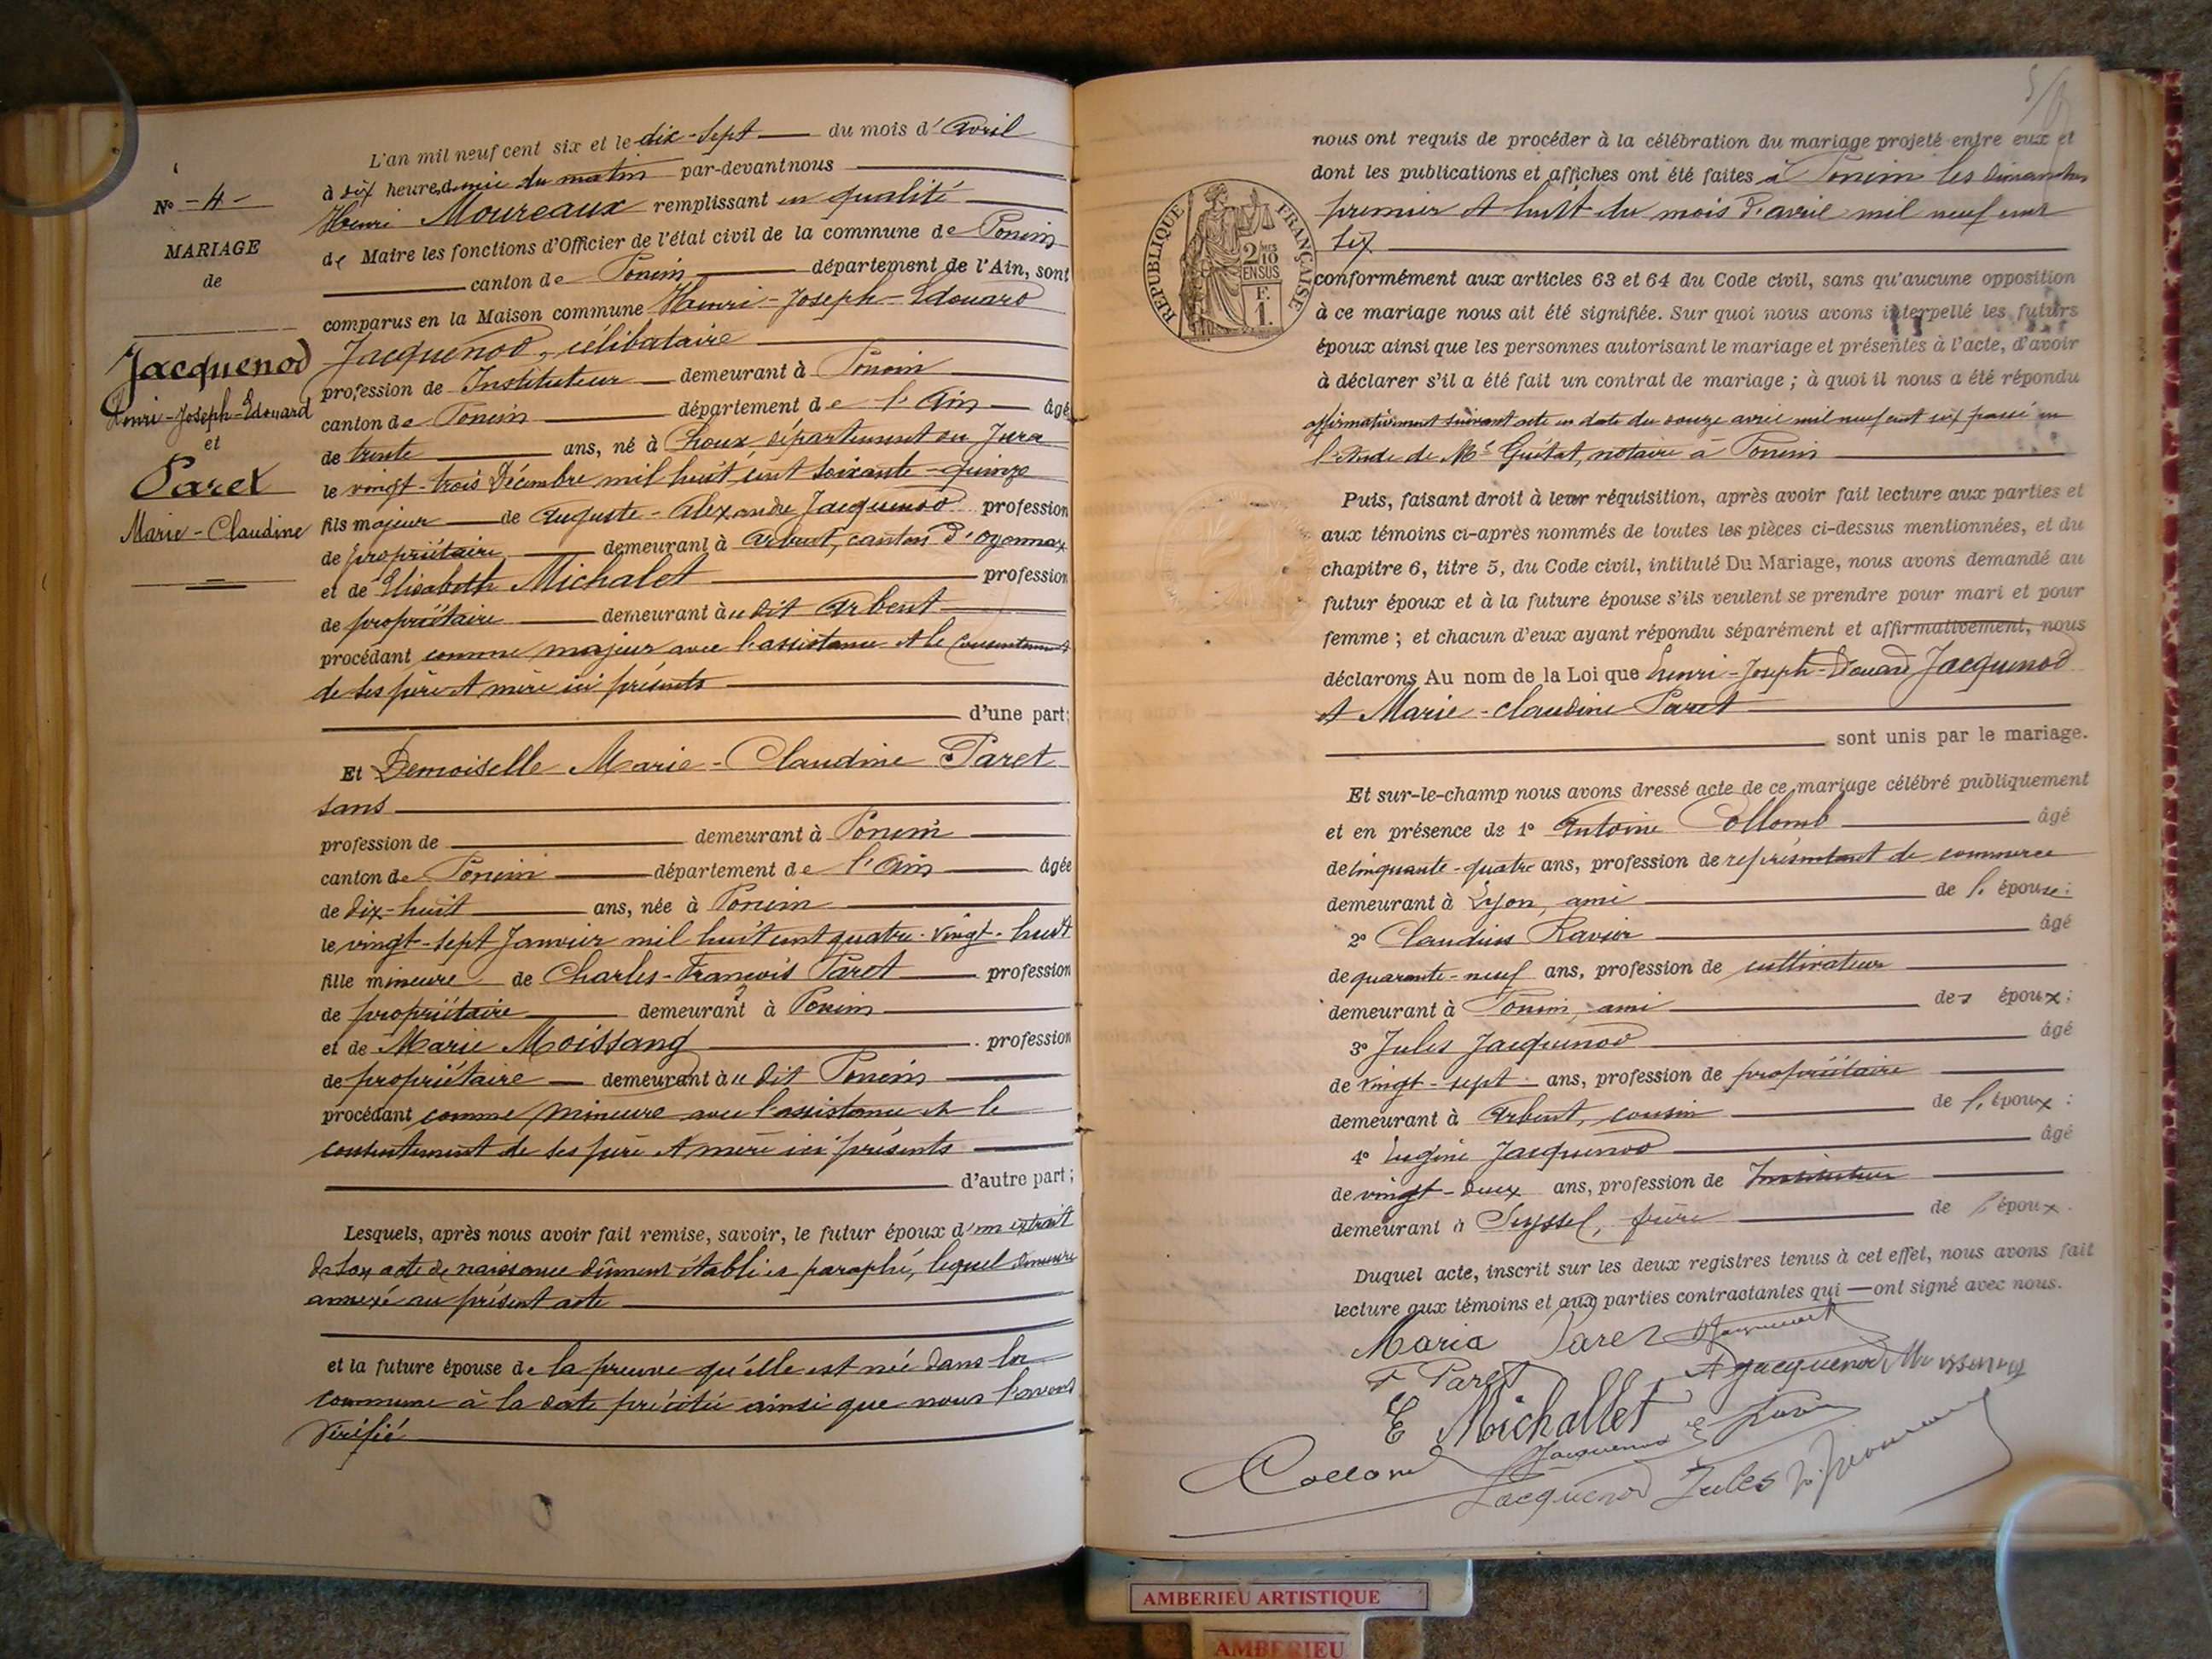 L'an mil neuf cent six et le dix-sept du mois d'Avril
à dix heures demie du matin par-devant nous
Henri Moureaux remplissant en qualité
de Maire les fonctions d'Officier de l'état civil de la commune de Poncin
canton de Poncin département de l'Ain, sont
comparus en la Maison commune Henri-Joseph-Edouard
Jacquenod, célibataire
profession de Instituteur demeurant à Poncin
canton de Poncin département de l'Ain âgé
de trente ans, né à Choux département du Jura
le vingt-trois Décembre mil huit cent soixante-quinze
fils majeur de Auguste-Alexandre Jacquenod profession
de propriétaire demeurant à Arbent, canton d'Oyonnax
et de Elisabeth Michalet profession
de propriétaire demeurant à u dit Arbent
procédant comme majeur avec l'assistance et le consentement
de ses père et mère ici présents
d'une part;
Et Demoiselle Marie-Claudine Paret
sans
profession de demeurant à Poncin
canton de Poncin département de l'Ain âgée
de dix-huit ans, née à Poncin
le vingt-sept Janvier mil huit cent quatre-vingt-huit
fille mineure de Charles-François Paret profession
de propriétaire demeurant à Poncin
et de Marie Moissand profession
de propriétaire demeurant à u dit Poncin
procédant comme mineure avec l'assistance et le
consentement de ses père et mère ici présents
d'autre part;
Lesquels, après nous avoir fait remise, savoir, le futur époux d'un extrait
de son acte de naissance dûment établi et paraphé, lequel demeure
annexé au présent acte
et la future épouse de la preuve qu'elle est née dans la
commune à la date précitée ainsi que nous l'avons
vérifié
N° -4-
MARIAGE
de
Jacquenod
Henri-Joseph-Edouard
et
Paret
Marie-Claudine
nous ont requis de procéder à la célébration du mariage projeté entre eux et
dont les publications et affiches ont été faites à Poncin les dimanches
premier et huit du mois d'avril mil neuf cent
six
conformément aux articles 63 et 64 du Code civil, sans qu'aucune opposition
à ce mariage nous ait été signifiée. Sur quoi nous avons interpellé les futurs
époux ainsi que les personnes autorisant le mariage et présentes à l'acte, d'avoir
à déclarer s'il a été fait un contrat de mariage ; à quoi il nous a été répondu
affirmativement suivant acte en date du douze avril mil neuf cent six passé en
l'étude de Me Guétat, notaire à Poncin
Puis, faisant droit à leur réquisition, après avoir fait lecture aux parties et
aux témoins ci-après nommés de toutes les pièces ci-dessus mentionnées, et du
chapitre 6, titre 5, du Code civil, intitulé Du Mariage, nous avons demandé au
futur époux et à la future épouse s'ils veulent se prendre pour mari et pour
femme ; et chacun d'eux ayant répondu séparément et affirmativement, nous
déclarons Au nom de la Loi que Henri-Joseph-Edouard Jacquenod
et Marie-Claudine Paret
sont unis par le mariage.
Et sur-le-champ nous avons dressé acte de ce mariage célébré publiquement
et en présence de 1° Antoine Collomb âgé
de cinquante-quatre ans, profession de représentant de commerce
demeurant à Lyon, ami de l'épouse;
2° Claudius Ravier âgé
de quarante-neuf ans, profession de cultivateur
demeurant à Poncin, ami des époux;
3° Jules Jacquenod âgé
de vingt-sept ans, profession de propriétaire
demeurant à Arbent, cousin de l'époux;
4° Eugène Jacquenod âgé
de vingt-deux ans, profession de Instituteur
demeurant à Seyssel, frère de l'époux.
Duquel acte, inscrit sur les deux registres tenus à cet effet, nous avons fait
lecture aux témoins et aux parties contractantes qui ont signé avec nous.
Maria Paret
F Paret A Jacquenod
E Michallet
Jacquenod E
Collomb
Jacquenod Jules
REPUBLIQUE FRANÇAISE
2/10
EN SUS
F.
1.
AMBERIEU ARTISTIQUE
AMBERIEU